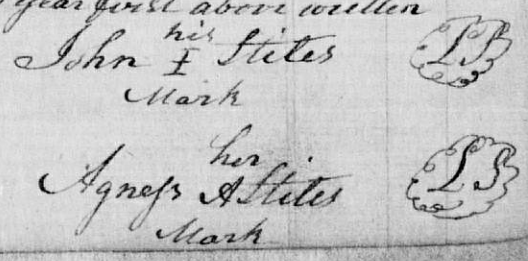 year first above written
his
John I Stites LS
Mark
her
Agneſs A Stites LS
Mark